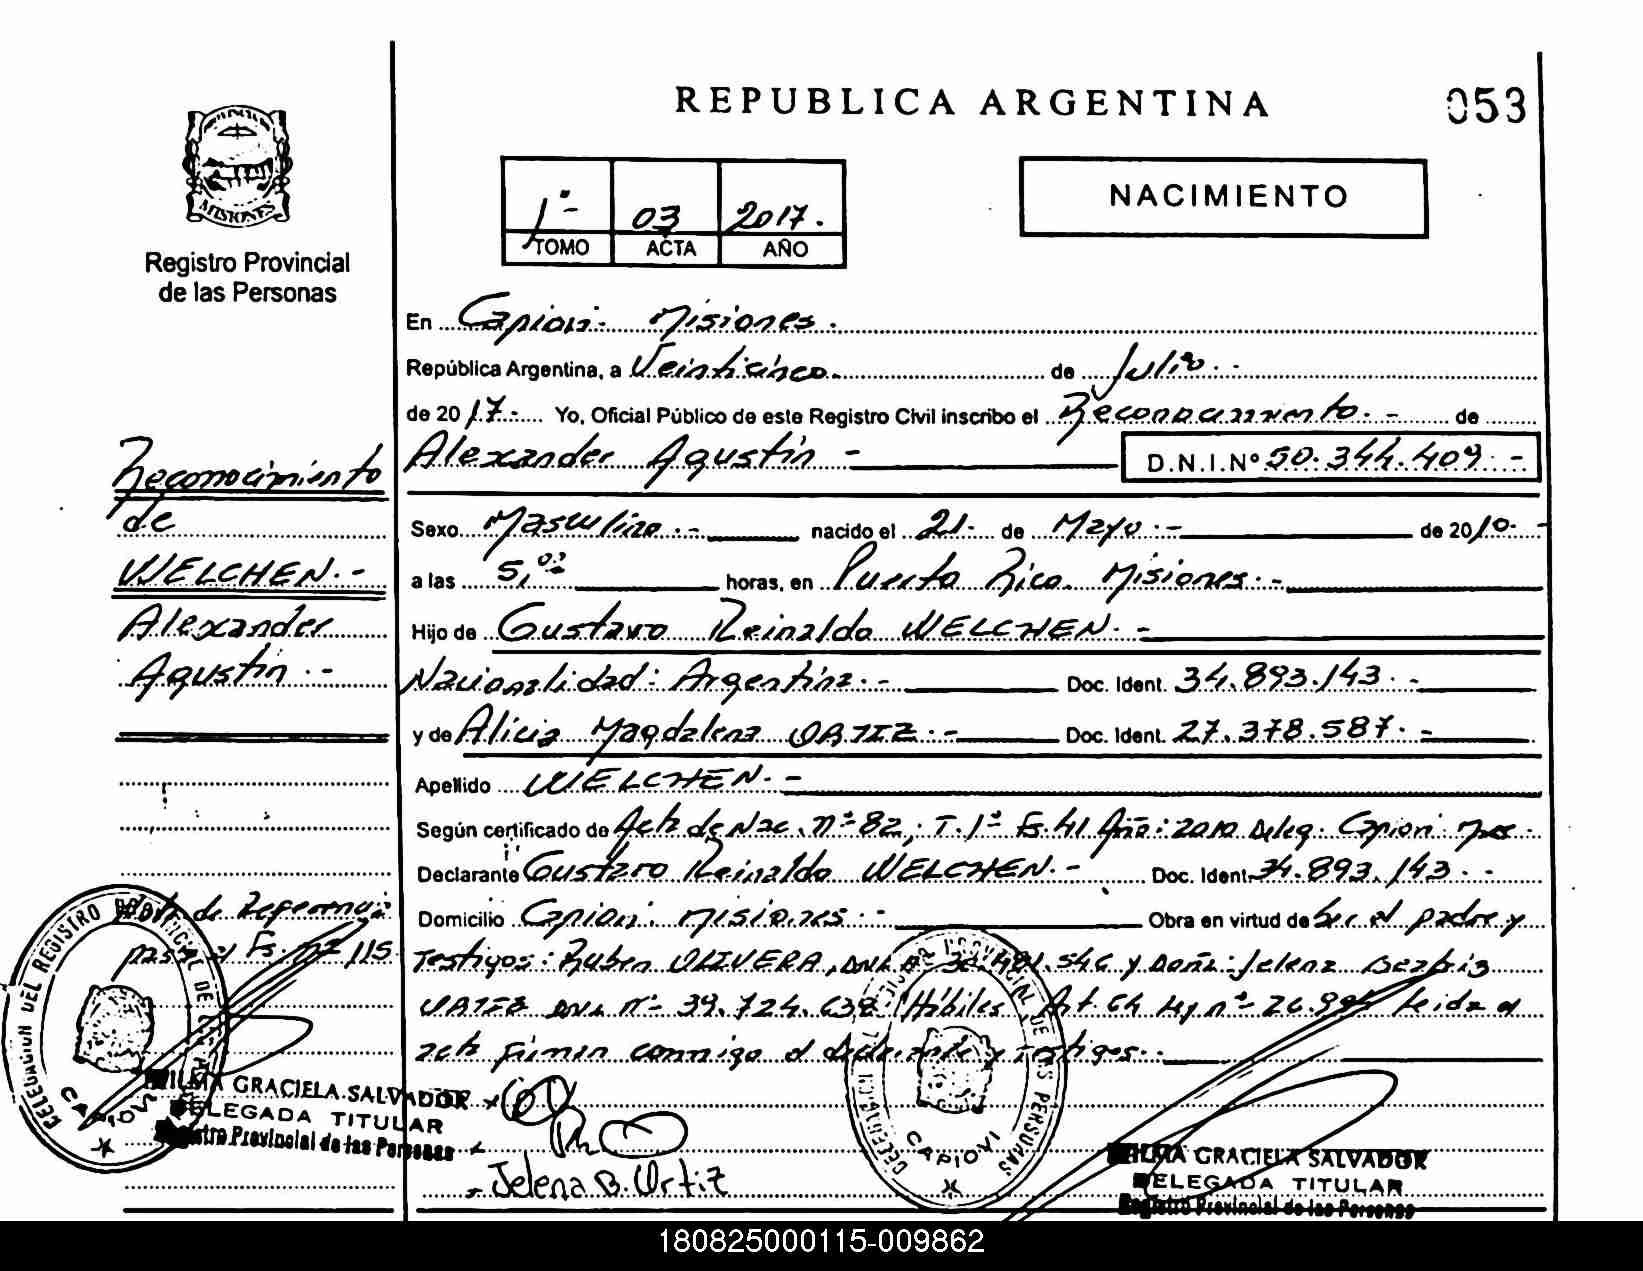 REPUBLICA ARGENTINA
053
MISIONES
Registro Provincial
de las Personas
1º- 03 2017.
TOMO ACTA AÑO
NACIMIENTO
En Capiovi- Misiones.
República Argentina, a Veinticinco. de Julio.-
de 2017.- Yo, Oficial Público de este Registro Civil inscribo el Reconocimiento.- de
Alexander Agustín - D.N.I.Nº 50.344.409.-
Sexo Masculino.- nacido el 21- de Mayo.- de 2010.-
a las 5,00 horas, en Puerto Rico. Misiones.-
Hijo de Gustavo Reinaldo WELCHEN.-
Nacionalidad: Argentina.- Doc. Ident. 34.893.143.-
y de Alicia Magdalena ORTIZ.- Doc. Ident. 27.378.587.-
Apellido WELCHEN.-
Según certificado de Acta de Nac. nº 82, T. 1º Fº 41 Año: 2010 Deleg. Capiovi
Declarante Gustavo Reinaldo WELCHEN.- Doc. Ident. 34.893.143.-
Domicilio Capiovi. Misiones.- Obra en virtud de Ser el padre y
Testigos: Ruben OLIVERA, DNI y Doña: Jelena Beatriz
ORTIZ DNI nº 39.724.638 Hábiles Art 64 Ley nº 26.994 Leida el
acta firman conmigo el declarante y Testigos.-
Reconocimiento
de
WELCHEN.-
Alexander
Agustín.-
115
DELEGACION DEL REGISTRO PROVINCIAL DE LAS PERSONAS
CAPIOVI
WILMA GRACIELA SALVADOR
DELEGADA TITULAR
Registro Provincial de las Personas
Jelena B. Ortiz
DELEGACION DEL REGISTRO PROVINCIAL DE LAS PERSONAS
CAPIOVI
WILMA GRACIELA SALVADOR
DELEGADA TITULAR
Registro Provincial de las Personas
180825000115-009862